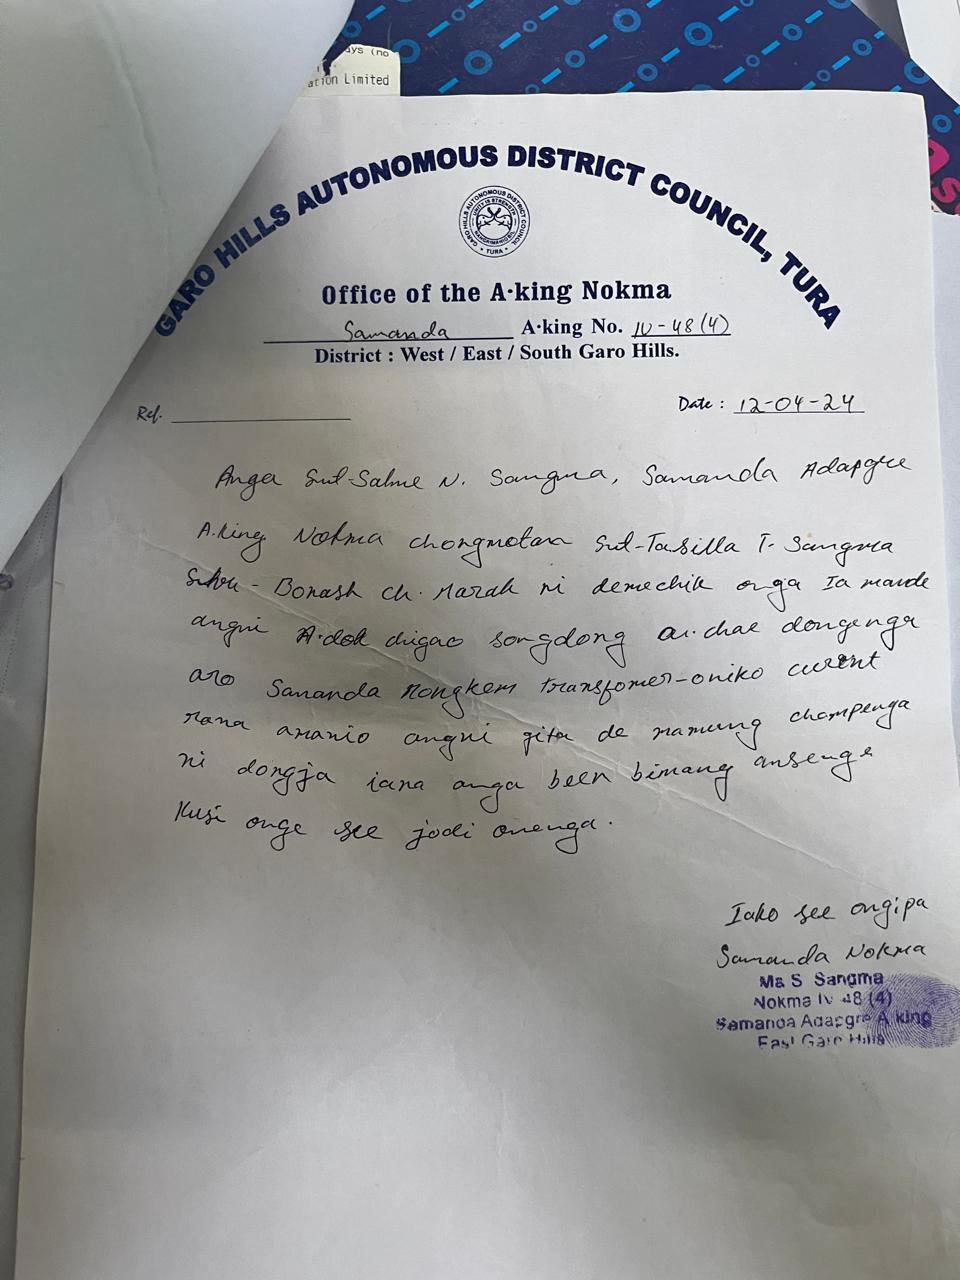 ays (no
ation Limited
GARO HILLS AUTONOMOUS DISTRICT COUNCIL, TURA
GARO HILLS AUTONOMOUS DISTRICT COUNCIL
UNITY IS STRENGTH
TURA
Office of the A·king Nokma
Samanda A·king No. IV-48(4)
District : West / East / South Garo Hills.
Ref.
Date : 12-04-24
Anga Smt-Salme N. Sangma, Samanda Adapgre
A·king Nokma chongmotan Smt-Tasilla T. Sangma
- Bonash ch. Marak ni demechik onga Ia mande
angni A·dok chigao songdong a·chae dongenga
aro Samanda Nongkem transfomer-oniko current
rana amanio angni gita de mamung champenga
ni dongja iana anga been bimang ansenge
Kusi onge see jodi onenga.
Iako see ongipa
Samanda Nokma
S Sangma
Nokma Iv 48 (4)
Samanda Adapgre A king
East Garo Hills